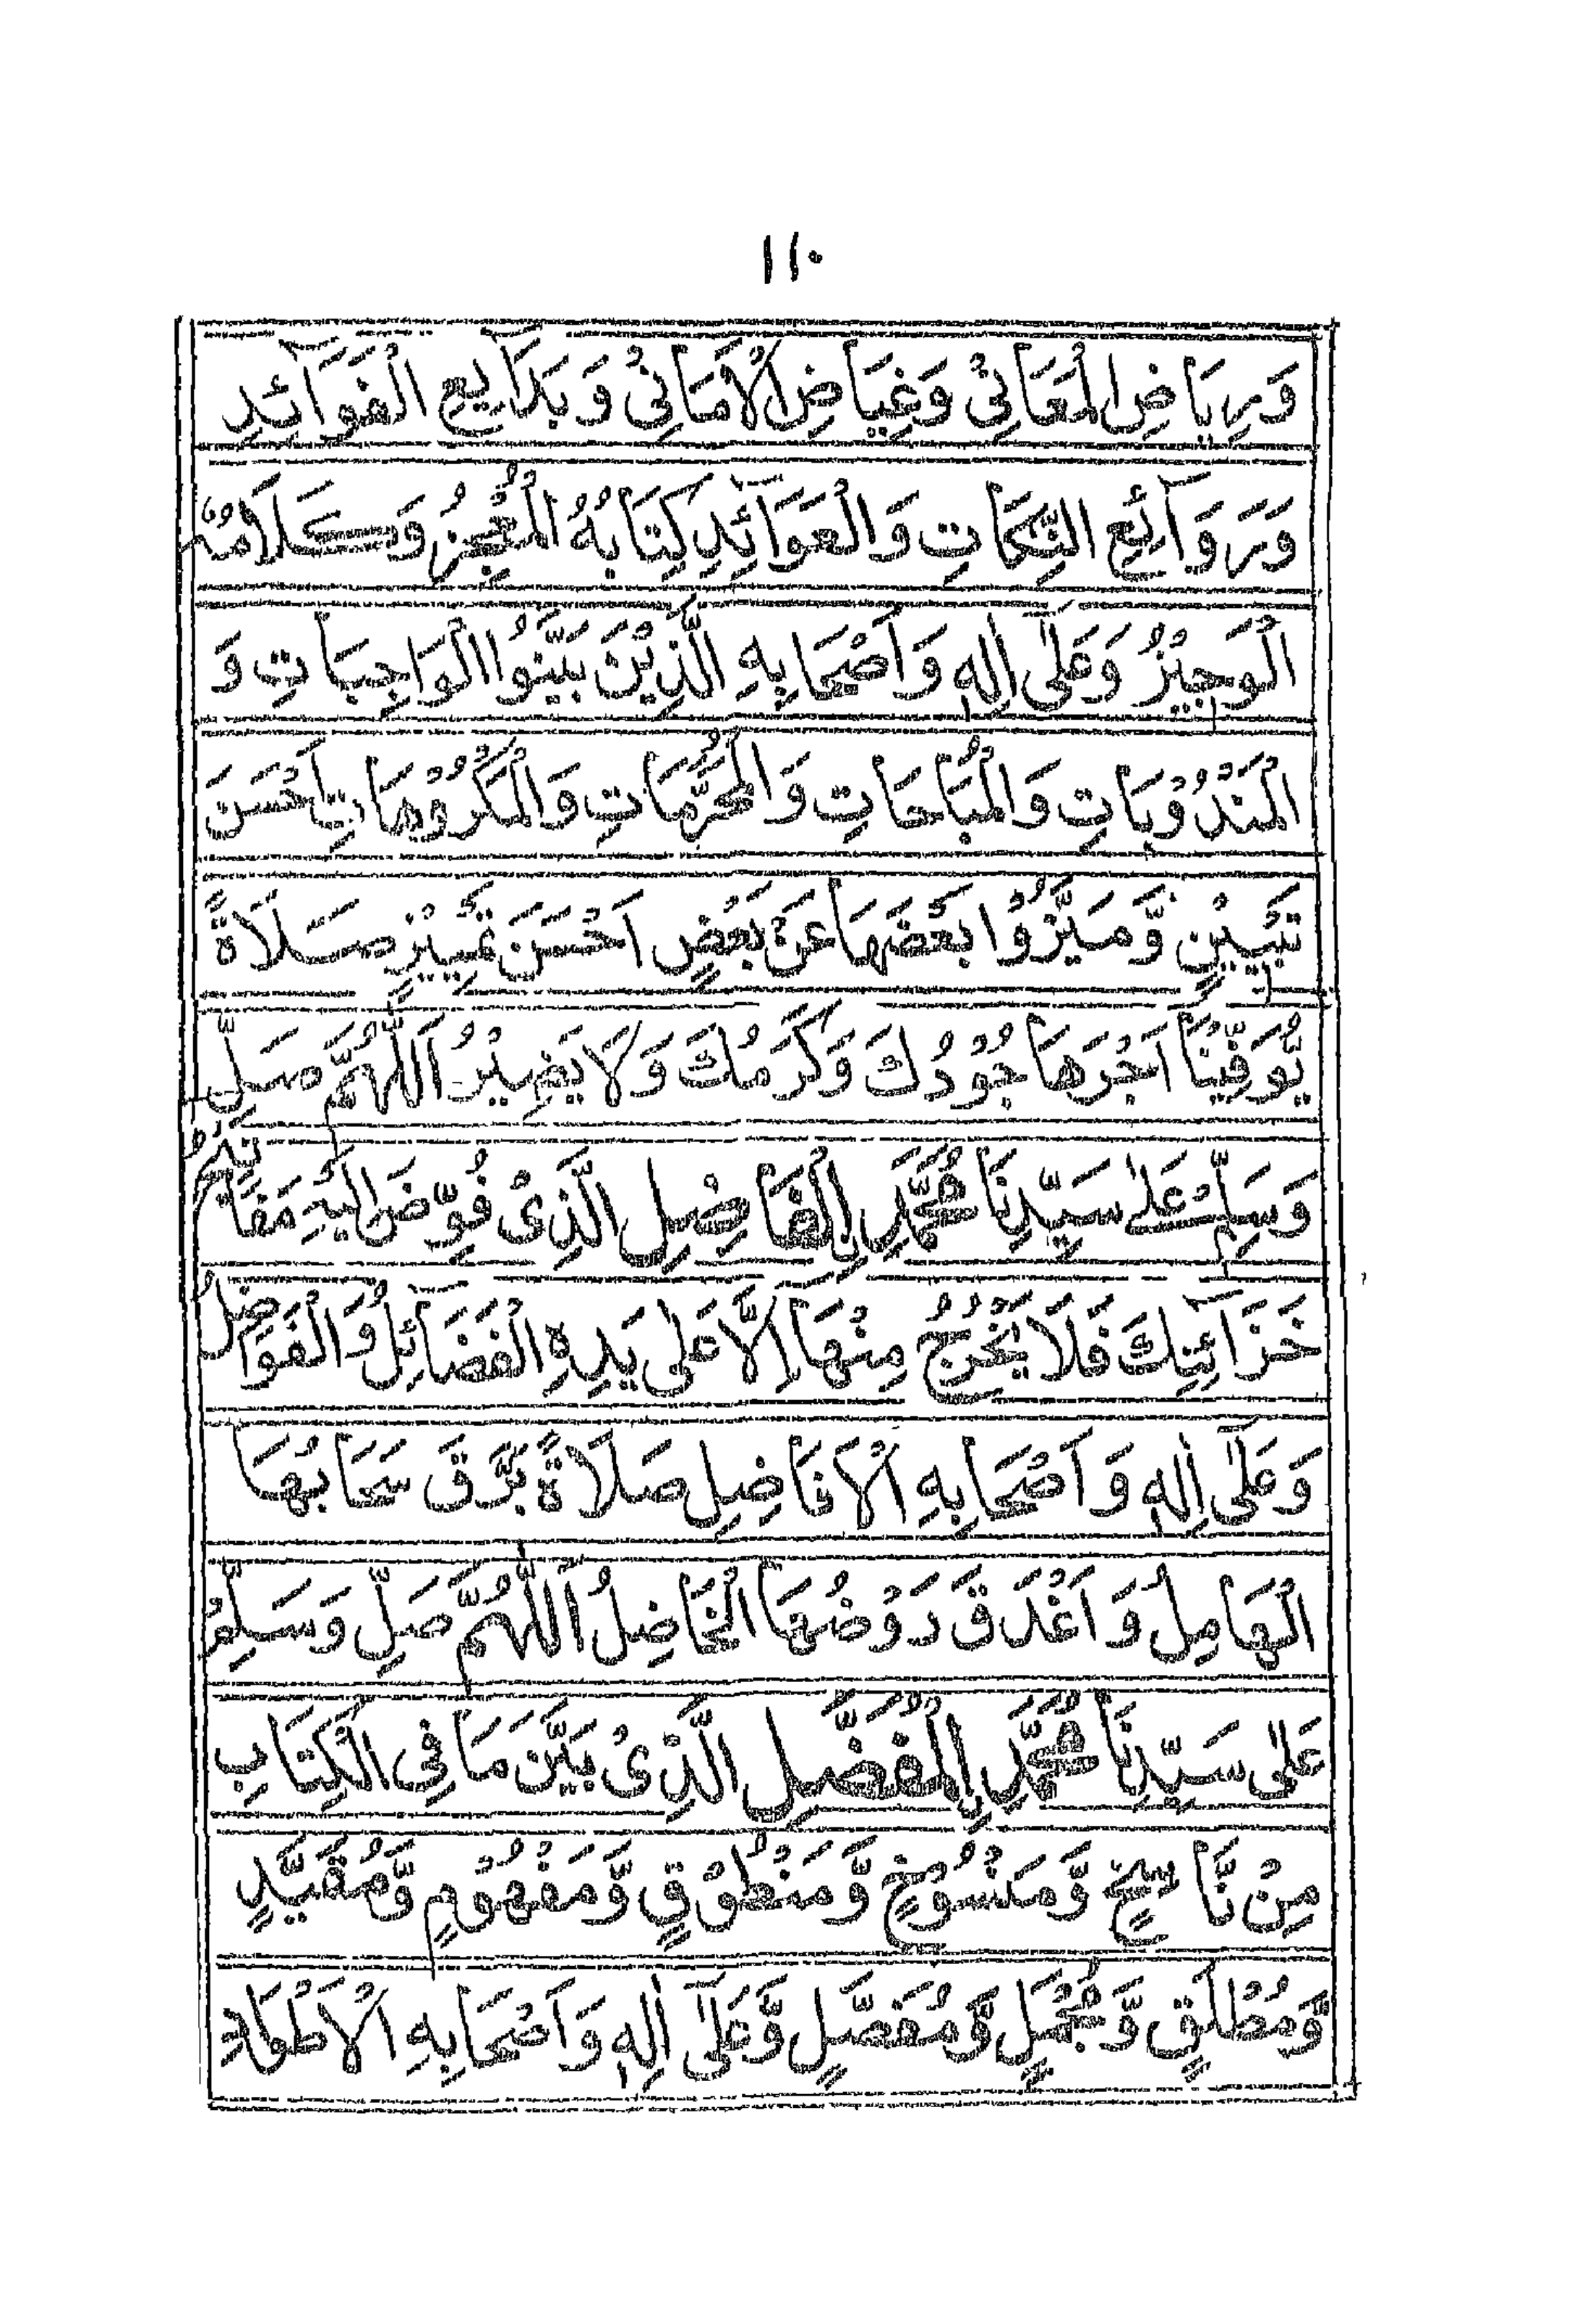 ١١٠
وَرِيَاضِ الْمَعَانِيْ وَغِيَاضِ الْاَمَانِيْ وَ بَدَايِعِ الْفَوَآئِدِ
وَرَوَآئِعِ النِّكَاتِ وَالْعَوَآئِدِ كِتَابُهُ الْمُعْجِزُ وَكَلَامُهُ
الْوَجِيْزُ وَعَلٰٓى اٰلِهٖ وَاَصْحَابِهِ الَّذِيْنَ بَيَّنُوا الْوَاجِبَاتِ وَ
الْمَنْدُوْبَاتِ وَالْمُبَاحَاتِ وَالْمُحَرَّمَاتِ وَالْمَكْرُوْهَاتِ اَحْسَنَ
تَبْيِيْنٍ وَّمَيَّزُوْا بَعْضَهَا عَنْ بَعْضٍ اَحْسَنَ تَمْيِيْزٍ صَلَاةً
يُّوَفِّيْنَا اَجْرَهَا جُوْدُكَ وَكَرَمُكَ وَلَا يَضِيْرُ اَللّٰهُمَّ صَلِّ
وَسَلِّمْ عَلٰى سَيِّدِنَا مُحَمَّدِ نِ الْفَاضِلِ الَّذِيْ فُوِّضَ اِلَيْهِ مَفَاتِيْحُ
خَزَآئِنِكَ فَلَا يَخْرُجُ مِنْهَا اِلَّا عَلٰى يَدِهِ الْفَضَآئِلُ وَالْفَوَاضِلُ
وَعَلٰٓى اٰلِهٖ وَ اَصْحَابِهِ الْاَفَاضِلِ صَلَاةً بَرَّقَ سَحَابُهَا
الْهَامِلُ وَ اَغْدَقَ رَوْضُهَا الْخَاضِلُ اَللّٰهُمَّ صَلِّ وَسَلِّمْ
عَلٰى سَيِّدِنَا مُحَمَّدِ نِ الْمُفَضَّلِ الَّذِيْ بَيَّنَ مَا فِى الْكِتَابِ
مِنْ نَّاسِخٍ وَّمَنْسُوْخٍ وَّمَنْطُوْقٍ وَّمَفْهُوْمٍ وَّمُقَيَّدٍ
وَّمُطْلَقٍ وَّمُجْمَلٍ وَّمُفَصَّلٍ وَّعَلٰٓى اٰلِهٖ وَاَصْحَابِهِ الْاَطْوَادِ